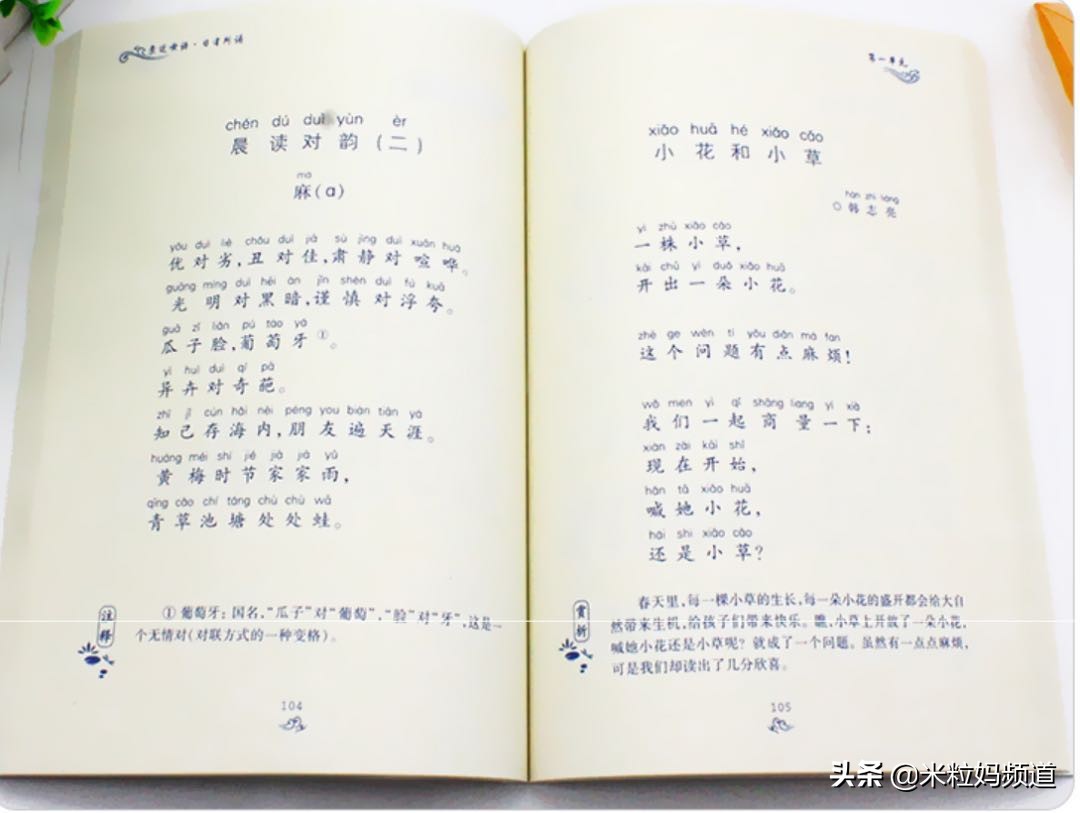 亲近母语·日有所诵
chén dú duì yùn èr
晨读对韵(二)
má
麻(ɑ)
yōu duì liè chǒu duì jiā sù jìng duì xuān huá
优对劣,丑对佳,肃静对喧哗。
guāng míng duì hēi àn jǐn shèn duì fú kuā
光明对黑暗,谨慎对浮夸。
guā zǐ liǎn pú táo yá
瓜子脸,葡萄牙①。
yì huì duì qí pā
异卉对奇葩。
zhī jǐ cún hǎi nèi péng you biàn tiān yá
知己存海内,朋友遍天涯。
huáng méi shí jié jiā jiā yǔ
黄梅时节家家雨,
qīng cǎo chí táng chù chù wā
青草池塘处处蛙。
注释
①葡萄牙:国名,“瓜子”对“葡萄”,“脸”对“牙”,这是一
个无情对(对联方式的一种变格)。
104
第一单元
xiǎo huā hé xiǎo cǎo
小花和小草
hán zhì liàng
○韩志亮
yì zhū xiǎo cǎo
一株小草,
kāi chū yì duǒ xiǎo huā
开出一朵小花。
zhè ge wèn tí yǒu diǎn má fan
这个问题有点麻烦!
wǒ men yì qǐ shāng liang yí xià
我们一起商量一下:
xiàn zài kāi shǐ
现在开始,
hǎn tā xiǎo huā
喊她小花,
hái shi xiǎo cǎo
还是小草?
赏析
春天里,每一棵小草的生长,每一朵小花的盛开都会给大自
然带来生机,给孩子们带来快乐。瞧,小草上开放了一朵小花,
喊她小花还是小草呢?就成了一个问题。虽然有一点点麻烦,
可是我们却读出了几分欣喜。
105
头条 @米粒妈频道